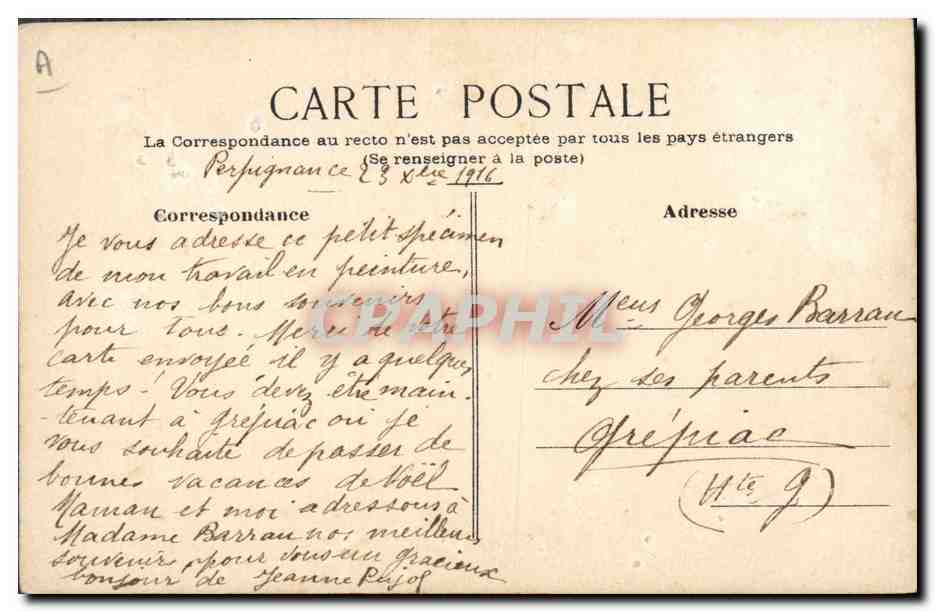 A
CARTE POSTALE
La Correspondance au recto n'est pas acceptée par tous les pays étrangers
(Se renseigner à la poste)
Perpignan ce 23 Xbre 1916
Correspondance
Je vous adresse ce petit spécimen
de mon travail en peinture,
avec nos bons souvenirs
pour tous. Merci de votre
carte envoyée il y a quelques
temps! Vous devez être main-
-tenant à Grépiac où je
vous souhaite de passer de
bonnes vacances de Noël
Maman et moi adressons à
Madame Barrau nos meilleurs
souvenirs, pour vous un gracieux
bonjour de Jeanne Pujol
Adresse
Meus Georges Barrau
chez ses parents
Grépiac
(Hte G)
CPAPHIL